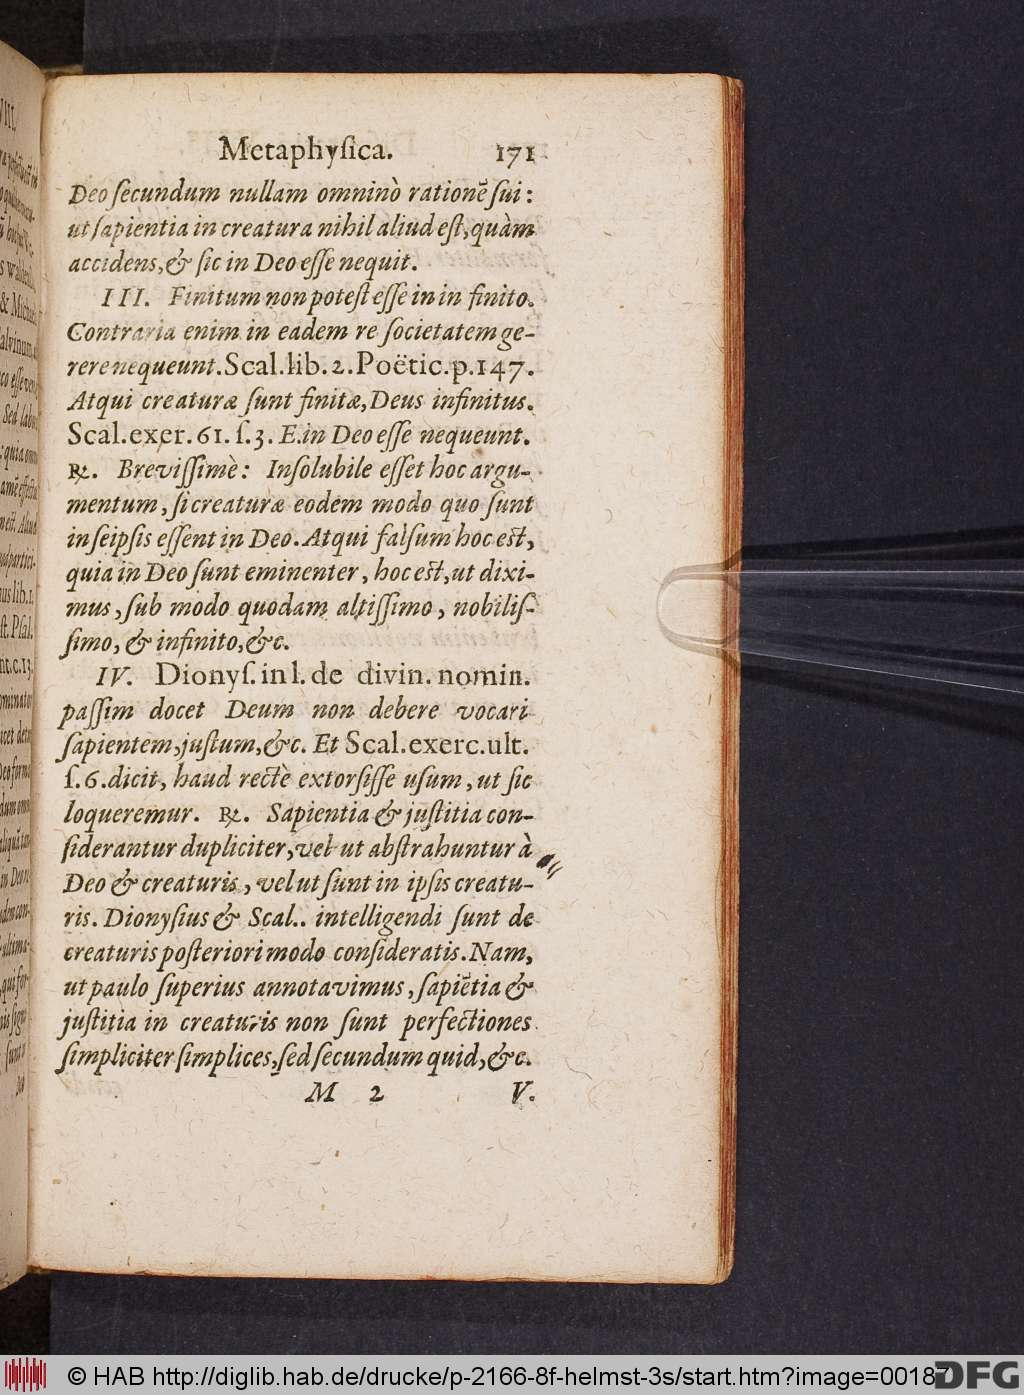 Metaphyſica. 171
Deo ſecundum nullam omninò rationẽ ſui:
ut ſapientia in creatura nihil aliud eſt, quàm
accidens, & ſic in Deo eſſe nequit.
III. Finitum non poteſt eſſe in in finito.
Contraria enim in eadem re ſocietatem ge-
rere nequeunt. Scal. lib. 2. Poëtic. p. 147.
Atqui creaturæ ſunt finitæ, Deus infinitus.
Scal. exer. 61. ſ. 3. E. in Deo eſſe nequeunt.
℞. Breviſſimè: Inſolubile eſſet hoc argu-
mentum, ſi creaturæ eodem modo quo ſunt
in ſeipſis eſſent in Deo. Atqui falſum hoc eſt,
quia in Deo ſunt eminenter, hoc eſt, ut dixi-
mus, ſub modo quodam altiſſimo, nobiliſ-
ſimo, & infinito, &c.
IV. Dionyſ. in l. de divin. nomin.
paſſim docet Deum non debere vocari
ſapientem, juſtum, &c. Et Scal. exerc. ult.
ſ. 6. dicit, haud rectè extorſiſſe uſum, ut ſic
loqueremur. ℞. Sapientia & juſtitia con-
ſiderantur dupliciter, vel ut abſtrahuntur à
Deo & creaturis, vel ut ſunt in ipſis creatu-
ris. Dionyſius & Scal.. intelligendi ſunt de
creaturis poſteriori modo conſideratis. Nam,
ut paulo ſuperius annotavimus, ſapiẽtia &
juſtitia in creaturis non ſunt perfectiones
ſimpliciter ſimplices, ſed ſecundum quid, &c.
M 2 V.
© HAB http://diglib.hab.de/drucke/p-2166-8f-helmst-3s/start.htm?image=00187
DFG